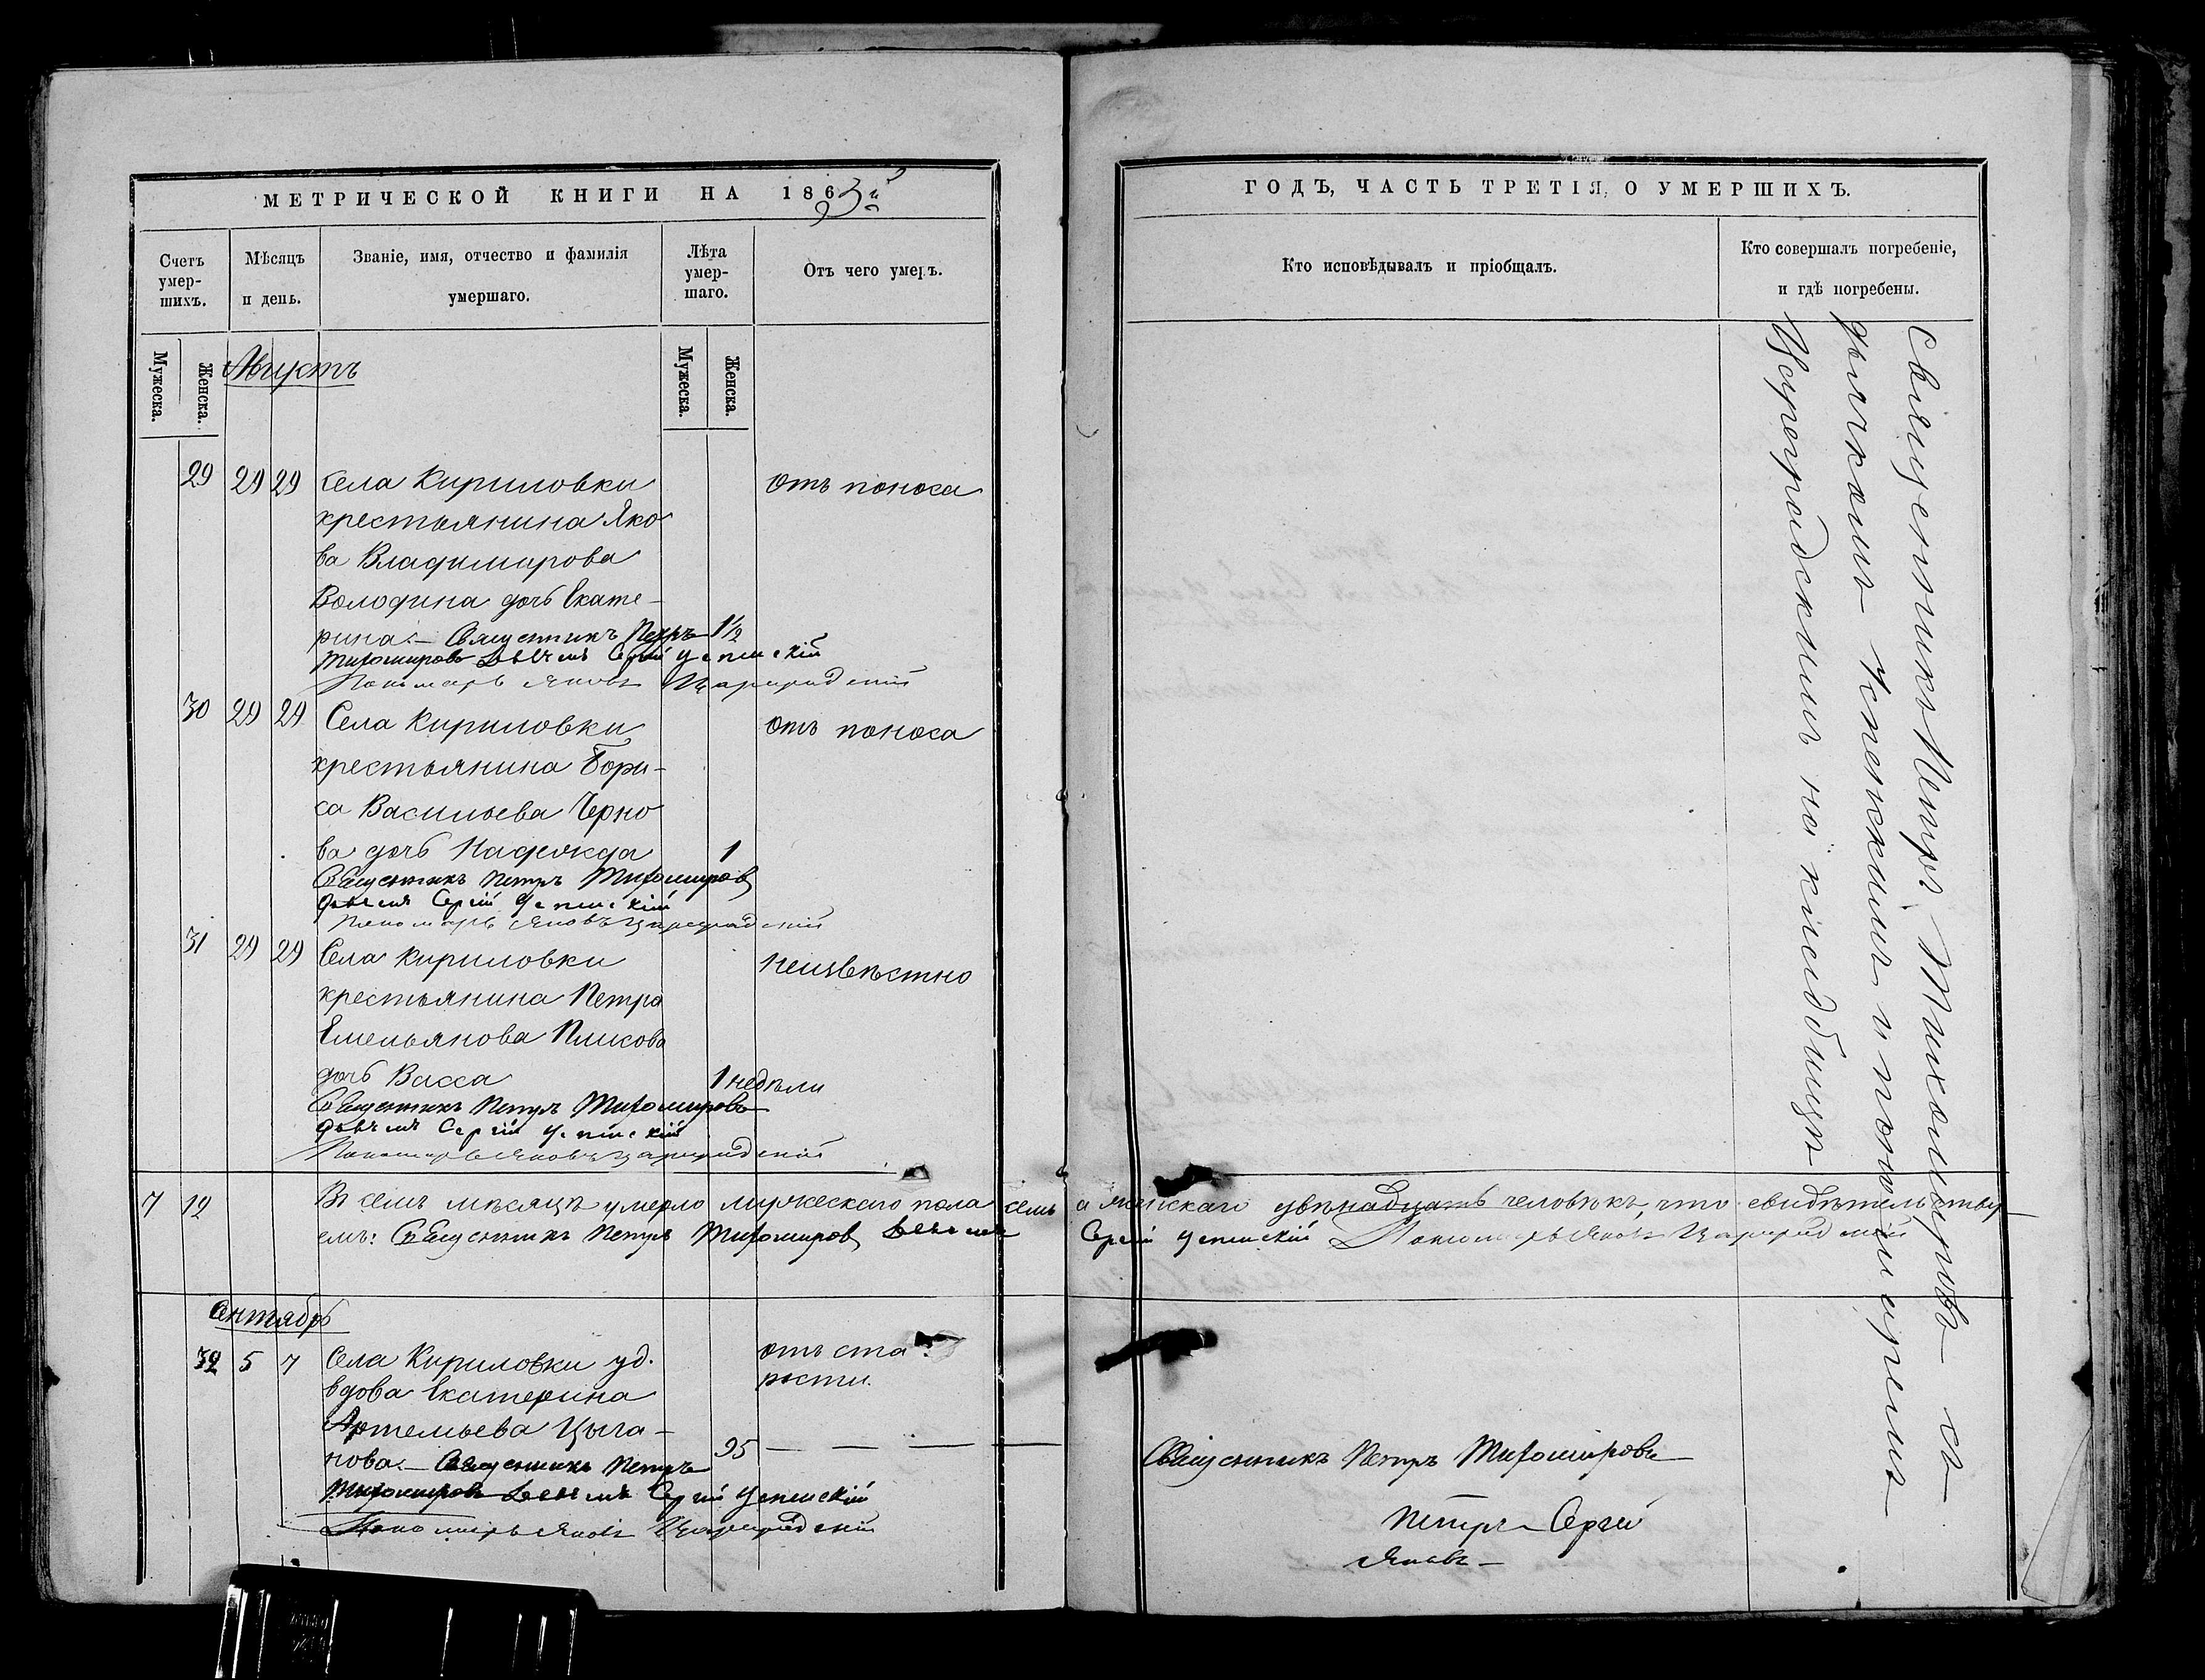 МЕТРИЧЕСКОЙ КНИГИ НА 1863й
Счетъ умер-шихъ.
Мѣсяцъ и день.
Званіе, имя, отчество и фамилія умершаго.
Лѣта умер-шаго.
Отъ чего умеръ.
Мужеска.
Женска.
Мужеска.
Женска.
Августъ
29 29 29 Села Кириловки отъ поноса
крестьянина Яко
ва Владимирова
Володина дочь Екате-
рина. Священникъ Петръ 1½
Тихомировъ Сергій Успенскій
Пономарь Яковъ Цареградскій
30 29 29 Села Кириловки отъ поноса
крестьянина Бори-
са Васильева Черно
ва дочь Надежда 1
Священникъ Петръ Тихомировъ
Сергій Успенскій
Пономарь Яковъ Цареградскій
31 29 29 Села Кириловки неизвѣстно
крестьянина Петра
Емельянова
дочь Васса 1 недѣли
Священникъ Петръ Тихомировъ
Сергій Успенскій
Пономарь Яковъ Цареградскій
7 12 Въ семъ мѣсяцѣ умерло мужескаго пола семь а женскаго двѣнадцать человѣкъ, что свидѣтельству
емъ: Священникъ Петръ Тихомировъ Сергій Успенскій Пономарь Яковъ Цареградскій
Сентябрь
32 5 7 Села Кириловки уд. отъ ста
вдова Екатерина рости.
Артемьева Цыга-
нова. Священникъ Петръ 95
Тихомировъ Сергій Успенскій
Пономарь Яковъ Цареградскій
ГОДЪ, ЧАСТЬ ТРЕТІЯ, О УМЕРШИХЪ.
Кто исповѣдывалъ и пріобщалъ.
Кто совершалъ погребеніе, и гдѣ погребены.
Священникъ Петръ Тихомировъ съ
дьячкомъ Успенскимъ и пономаремъ
Цареградскимъ на кладбищѣ
Священникъ Петръ Тихомировъ
Петръ Сергей
Яковъ